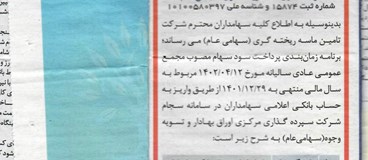 شماره ثبت ۱۵۸۷۴ و شناسه ملی ۱۰۱۰۰۵۸۰۳۹۷
بدینوسیله به اطلاع کلیه سهامداران محترم شرکت
تامین ماسه ریخته گری (سهامی عام) می رساند؛
برنامه زمان‌بندی پرداخت سود سهام مصوب مجمع
عمومی عادی سالیانه مورخ ۱۴۰۲/۰۴/۱۲ مربوط به
سال مالی منتهی به ۱۴۰۱/۱۲/۲۹ از طریق واریز به
حساب بانکی اعلامی سهامداران در سامانه سجام
شرکت سپرده گذاری مرکزی اوراق بهادار و تسویه
وجوه(سهامی‌عام) به شرح زیر است: